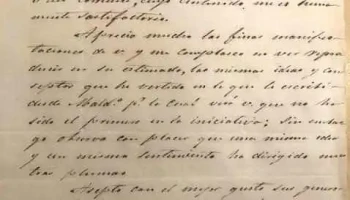 mente satisfactorio.
Aprecio mucho las finas manifes-
taciones de v. y me complazco en ver repro-
ducir en su estimada, las mismas ideas y con-
ceptos que he vertido en le que le escribí
desde Mald.º p.r lo cual vea v. que no ha
sido el primero en la iniciativa; sin emba-
go observo con placer que una misma idea
y un mismo sentimiento ha dirigido nues-
tras plumas.
Acepto con el mejor gusto sus genero-